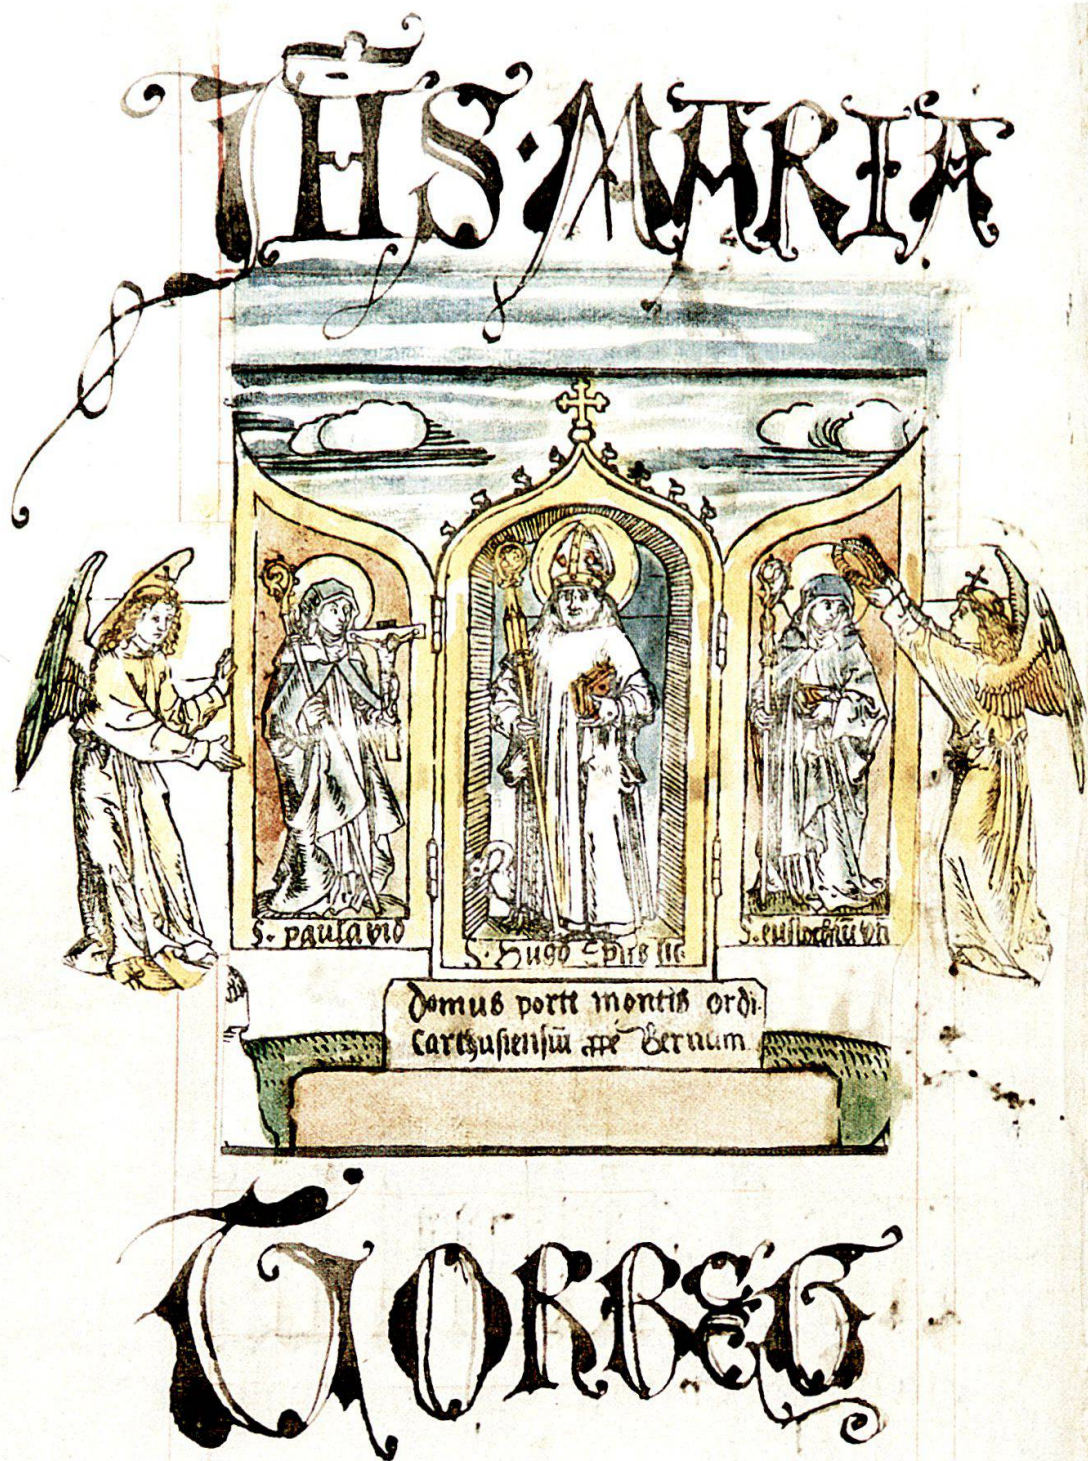 IHS · MARIA
S. paula vid
S. Hugo Epus
S. eustochiū
domus porte montis ordi.
Carthusiensiū ꝓpe Bernum
TORBEG